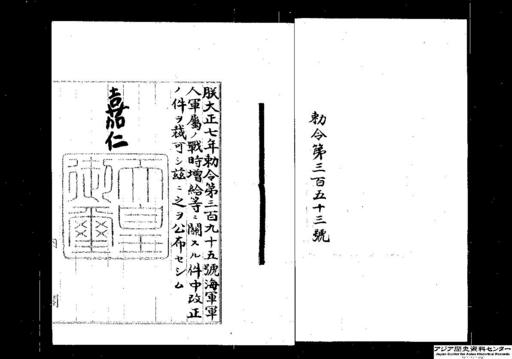 勅令第三百五十三號
朕大正七年勅令第三百九十五號海軍軍
人軍屬ノ戰時增給等ニ關スル件中改正
ノ件ヲ裁可シ玆ニ之ヲ公布セシム
嘉仁
天皇
御璽
アジア歴史資料センター
Japan Center for Asian Historical Records